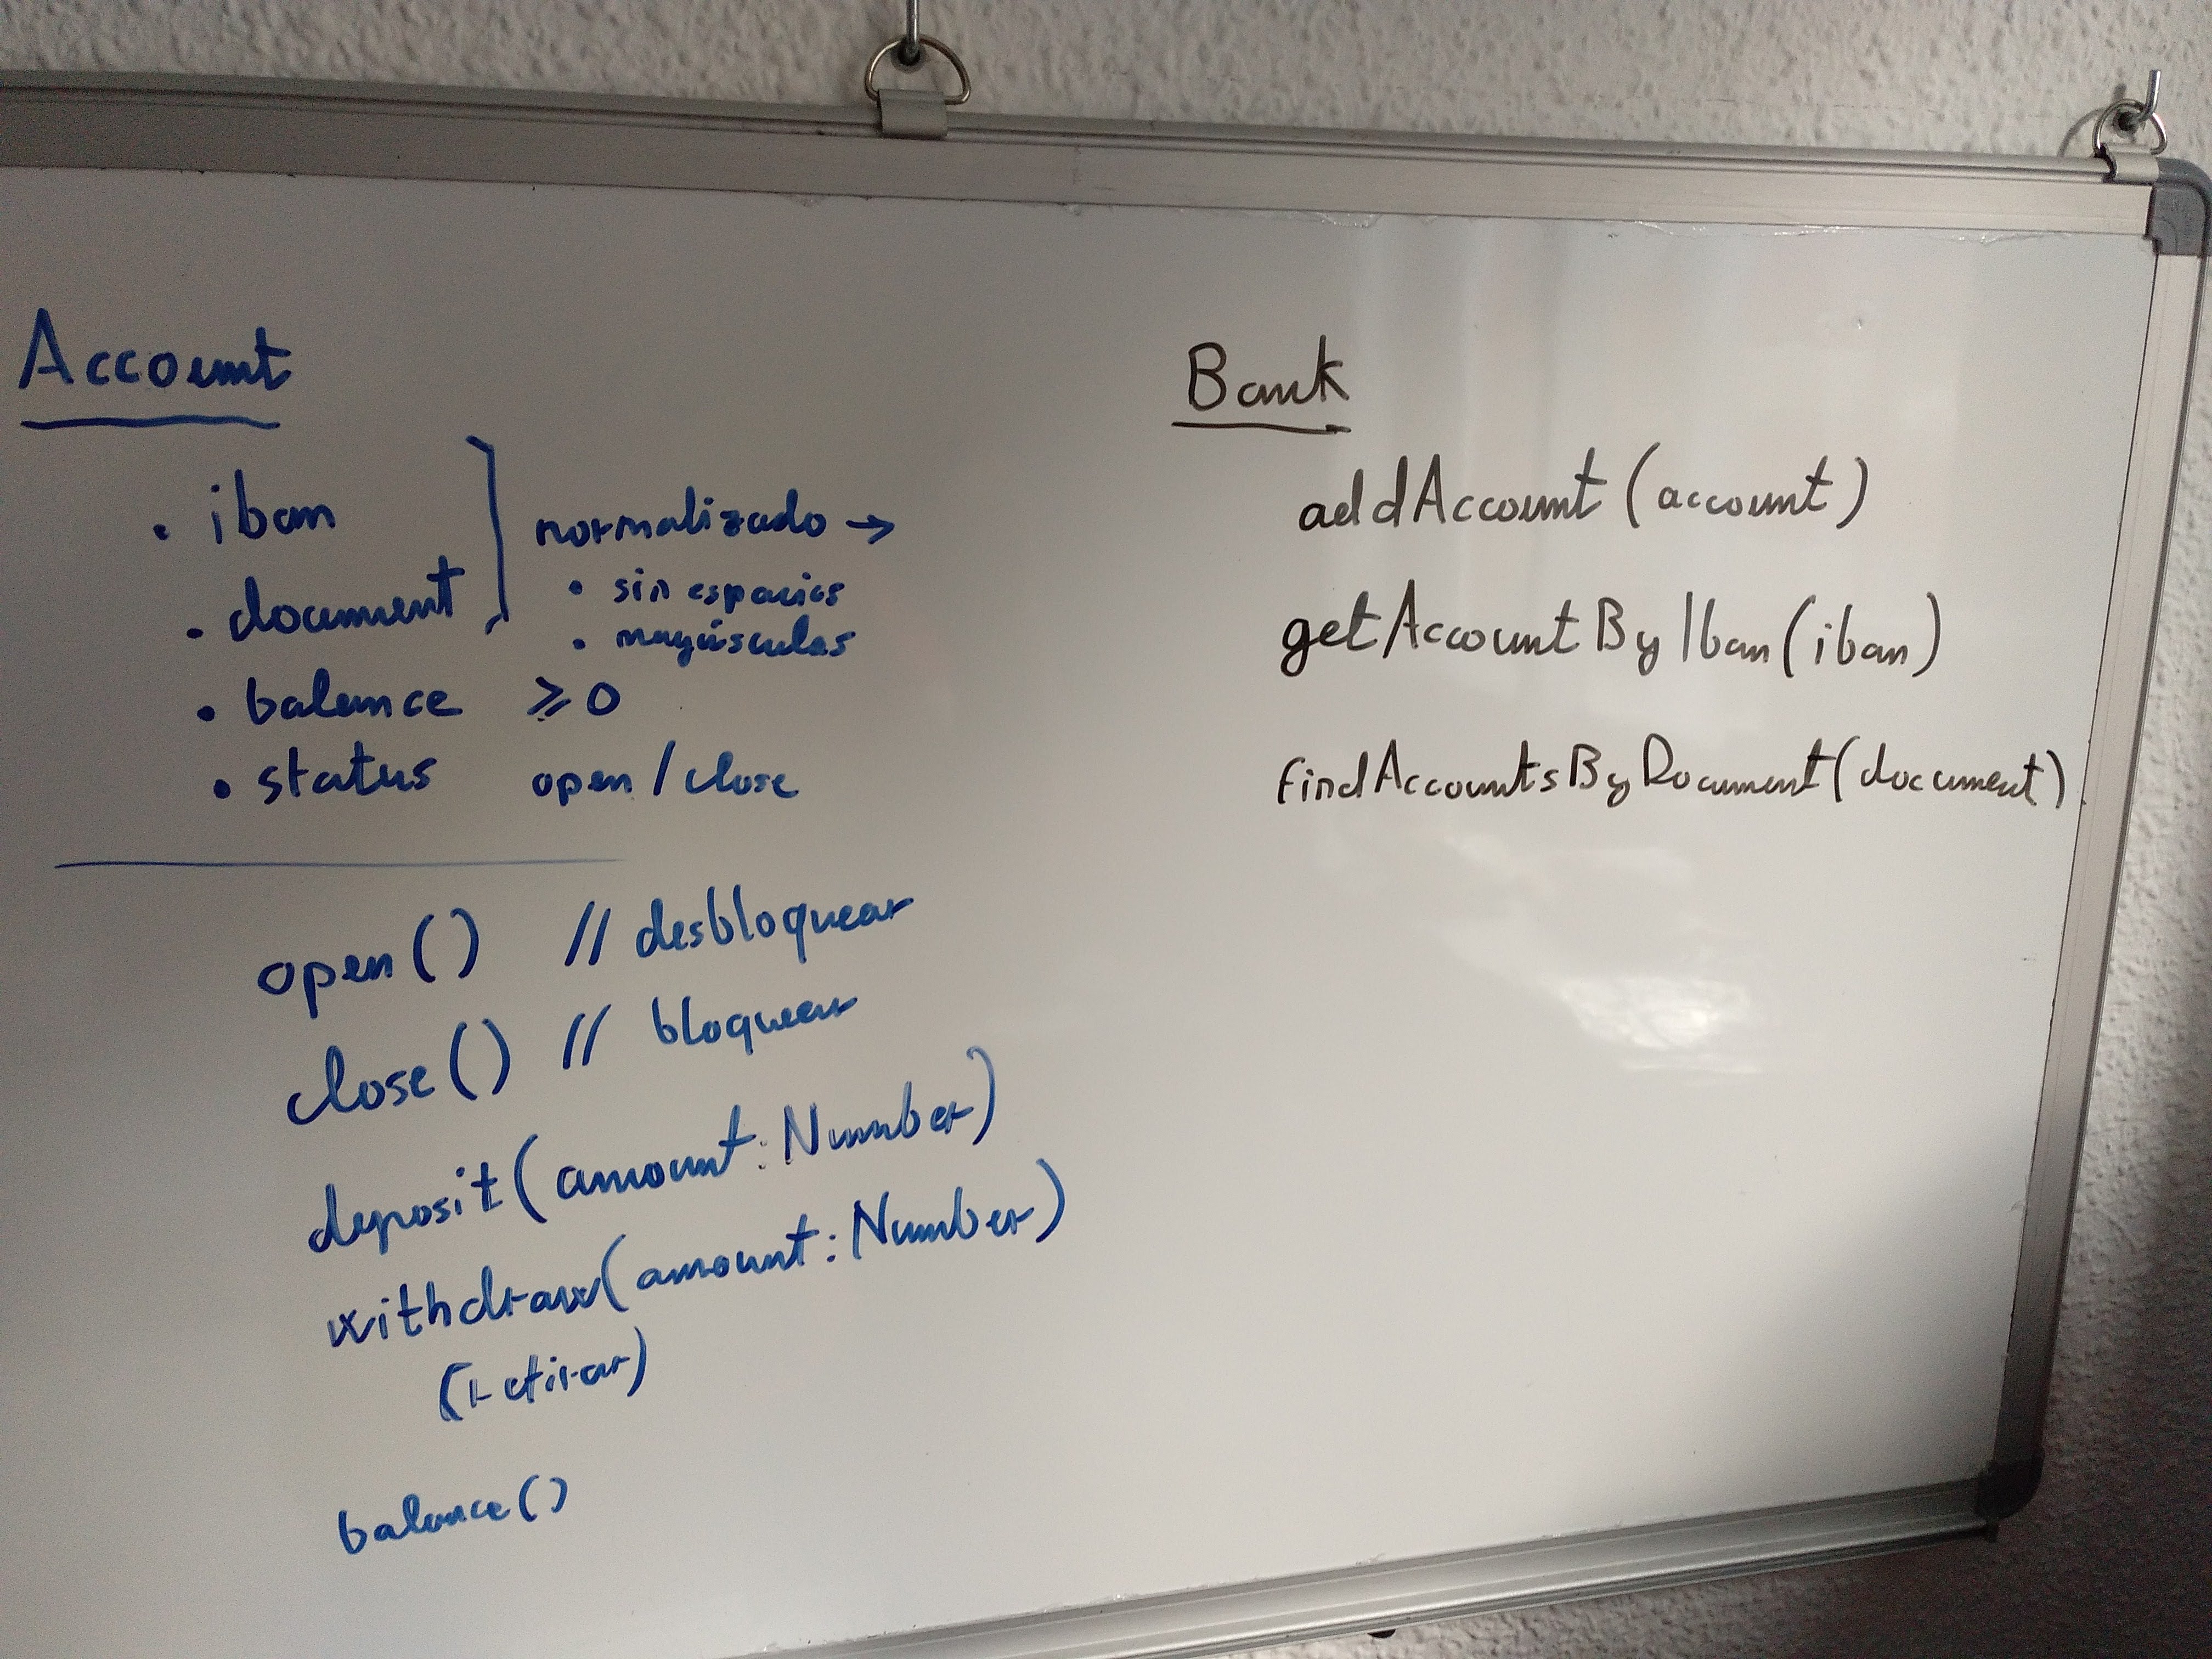 Account
• iban
• document
normalizado →
• sin espacios
• mayúsculas
• balance ≥ 0
• status open / close
open() // desbloquear
close() // bloquear
deposit(amount: Number)
withdraw(amount: Number)
(retirar)
balance()
Bank
addAccount(account)
getAccountByIban(iban)
findAccountsByDocument(document)